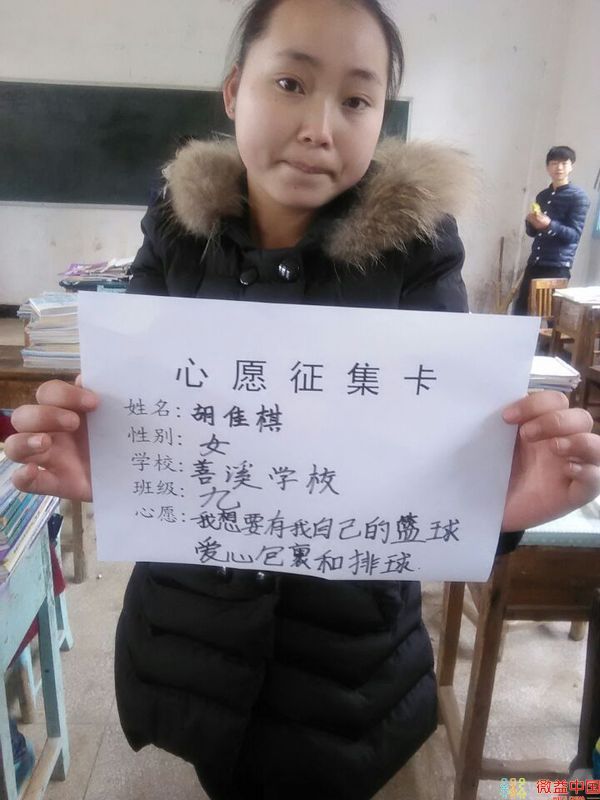 心愿征集卡
姓名：胡佳棋
性别：女
学校：善溪学校
班级：九
心愿：我想要有我自己的篮球
爱心包裹和排球.
微益中国